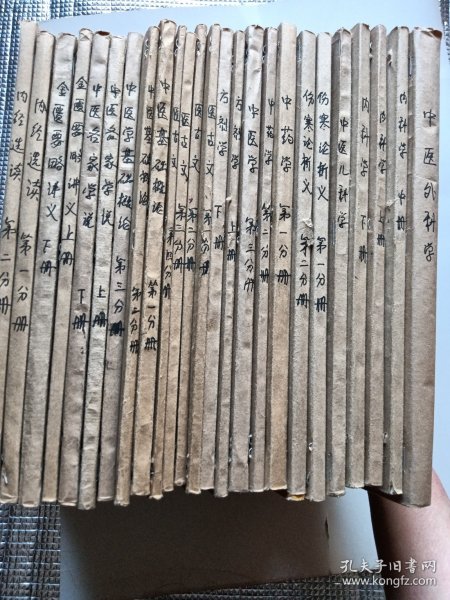 内经选读 第二分册
内经选读 第一分册
金匮要略讲义 下册
金匮要略讲义 上册
中医各家学说 下册
中医各家学说 上册
中医学基础概论 第三分册
中医基础概论 第二分册
中医基础概论 第一分册
医古文 第四分册
医古文 第三分册
医古文 第二分册
医古文 第一分册
方剂学 下册
方剂学 上册
中医学 第三分册
中药学 第二分册
中药学 第一分册
伤寒论析义 第二分册
伤寒论析义 第一分册
中医儿科学
内科学 下册
内科学 上册
内科学 中册
中医外科学
孔夫子旧书网
www.kongfz.com